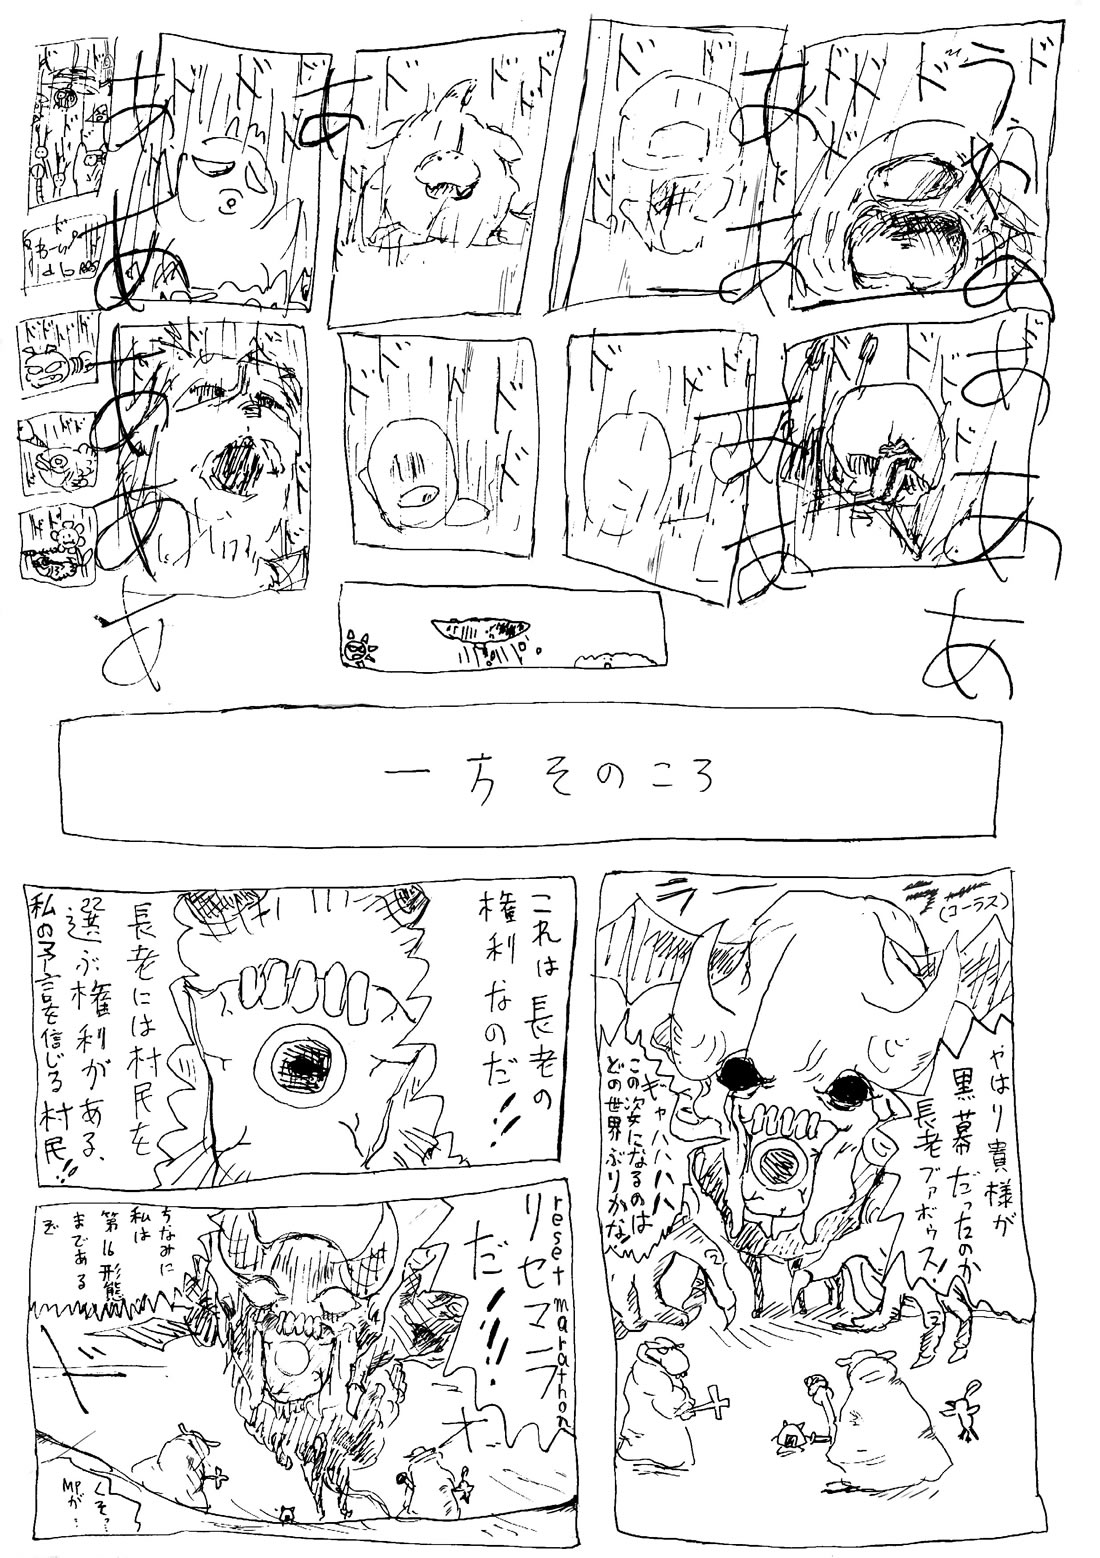 うわああああ
ああああ
ああ
あああああ
ド ド ド ド ド
ド ド ド
ド ド ド ド
ド ド ド
ド ド ド
ド ド ド
ド ド ド ド
一方そのころ
ラー
(コーラス)
やはり貴様が
黒幕だったのか
長老ブァボゥス!
ギャハハハハ
この姿になるのは
どの世界ぶりかな
これは長老の
権利なのだ!!
長老には村民を
選ぶ権利がある、
私の予言を信じる村民!!
reset marathon
リセマラ
だ!!!!
ちなみに
私は
第16形態
まである
ぞ
くそっ…
MPが…